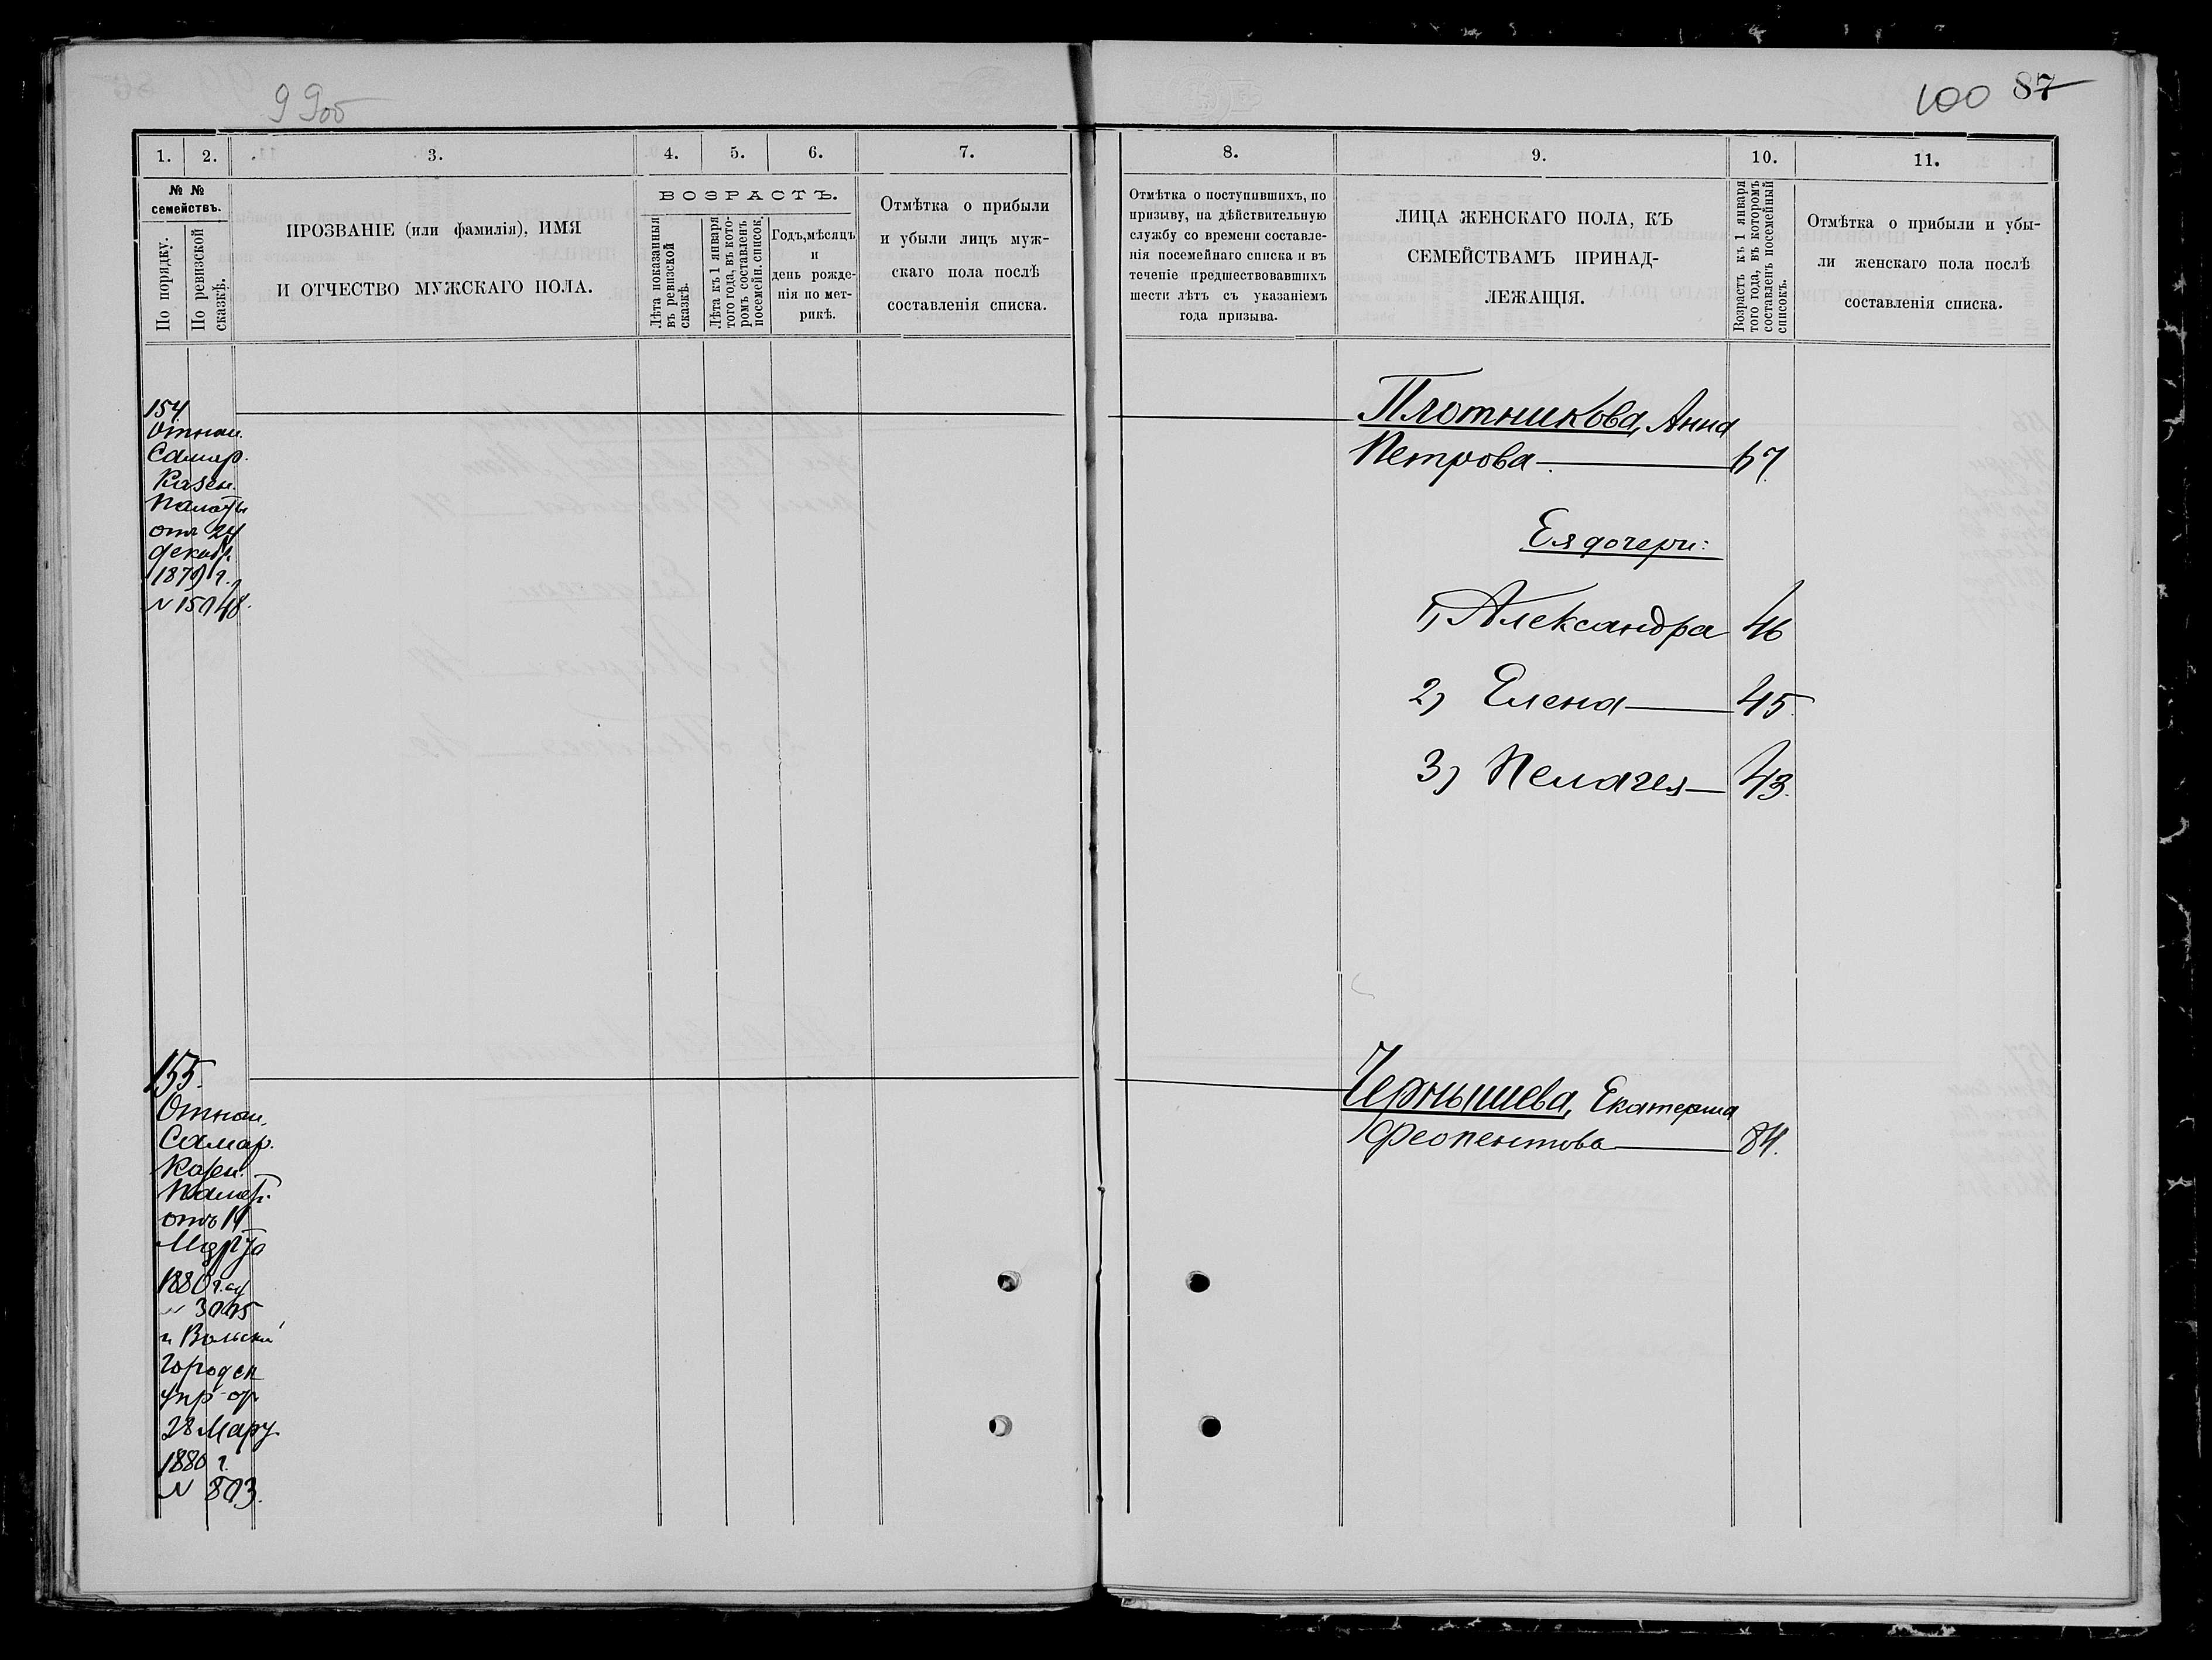 99 об
100 87
1.
2.
3.
4.
5.
6.
7.
№ №
семействъ.
По порядку.
По ревизской
сказкѣ.
ПРОЗВАНІЕ (или фамилія), ИМЯ
И ОТЧЕСТВО МУЖСКАГО ПОЛА.
ВОЗРАСТЪ.
Лѣта показанныя
въ ревизской
сказкѣ.
Лѣта къ 1 января
того года, въ кото-
ромъ составленъ
посемейн. список.
Годъ, мѣсяцъ
и
день рожде-
нія по мет-
рикѣ.
Отмѣтка о прибыли
и убыли лицъ муж-
скаго пола послѣ
составленія списка.
154
Отнош.
Самар.
Казен.
Палаты
отъ 24
декабр.
1879 г.
№ 15148.
155.
Отнош.
Самар.
Казен.
Палат.
отъ 14
Марта
1880 г.
№
и Вольской
Городск
упр от
28 Мар
1880 г.
№ 813.
8.
9.
10.
11.
Отмѣтка о поступившихъ, по
призыву, на дѣйствительную
службу со времени составле-
нія посемейнаго списка и въ
теченіе предшествовавшихъ
шести лѣтъ съ указаніемъ
года призыва.
ЛИЦА ЖЕНСКАГО ПОЛА, КЪ
СЕМЕЙСТВАМЪ ПРИНАД-
ЛЕЖАЩІЯ.
Возрастъ къ 1 января
того года, въ которомъ
составленъ посемейный
списокъ.
Отмѣтка о прибыли и убы-
ли женскаго пола послѣ
составленія списка.
Плотникова, Анна
Петрова 67.
Ея дочери:
1) Александра 46
2) Елена 45.
3) Пелагея 43.
Чернышева, Екатерина
Феопентова 84.